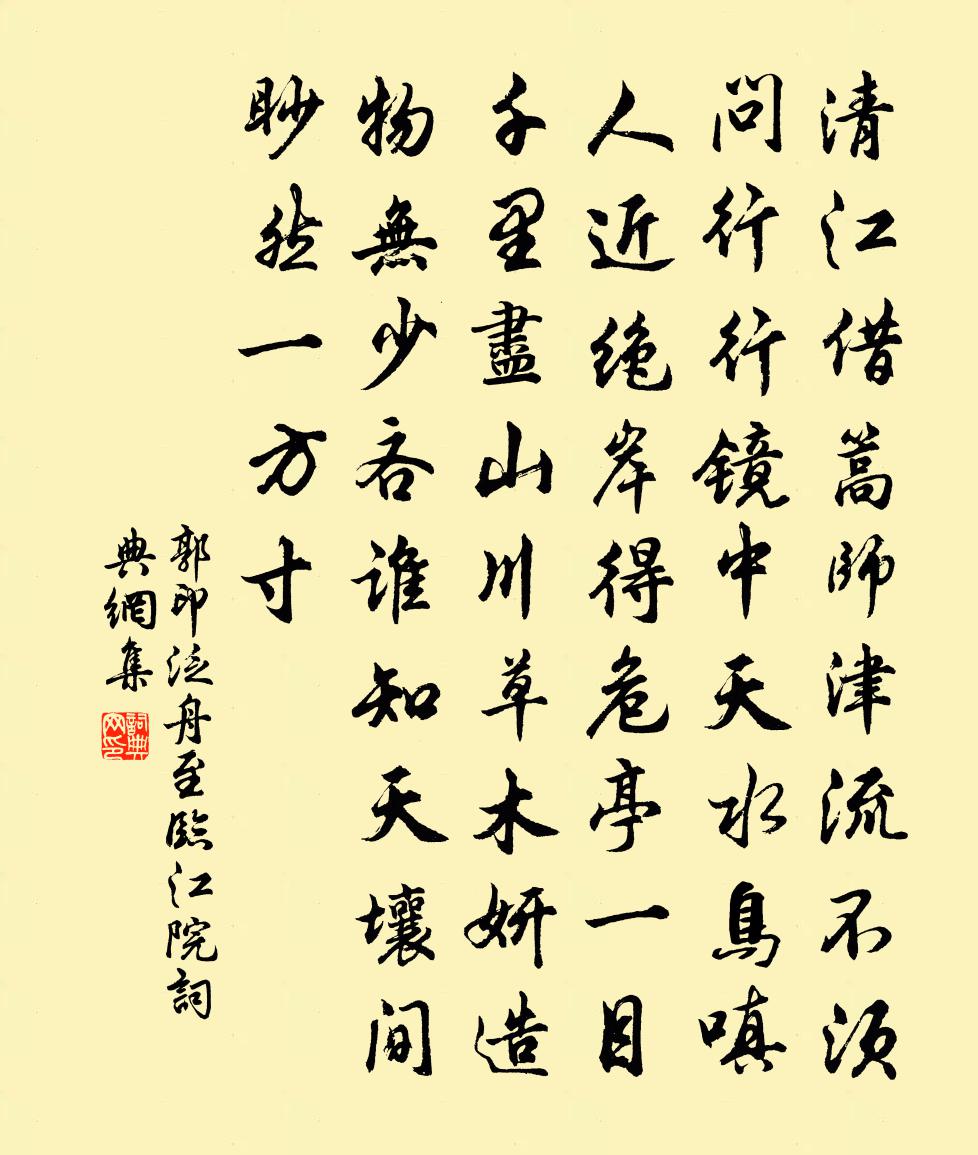 清江借篙師津流不須
問行行鏡中天水鳥嗔
人近絶岸得危亭一目
千里盡山川草木妍造
物無少吝誰知天壤間
眇然一方寸
郭印泛舟至臨江院詞
典網集
詞典网印